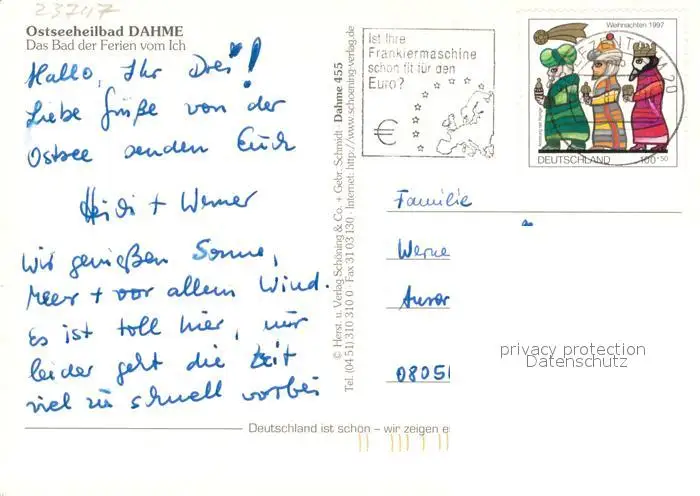 23747
Ostseeheilbad DAHME
Das Bad der Ferien vom Ich
Hallo, Ihr Drei!
Liebe Grüße von der
Ostsee senden Euch
Heidi + Werner
Wir genießen Sonne,
Meer + vor allem Wind.
Es ist toll hier, nur
leider geht die Zeit
viel zu schnell vorbei
© Herst. u. Verlag Schöning & Co. + Gebr. Schmidt · Dahme 455
Tel. (04 51) 310 310 0 · Fax 31 03 130 · Internet: http://www.schoening-verlag.de
Ist Ihre
Frankiermaschine
schon fit für den
Euro?
€
Weihnachten 1997
DEUTSCHLAND 100+50
20
Familie
Werne
08051
privacy protection
Datenschutz
Deutschland ist schön – wir zeigen e